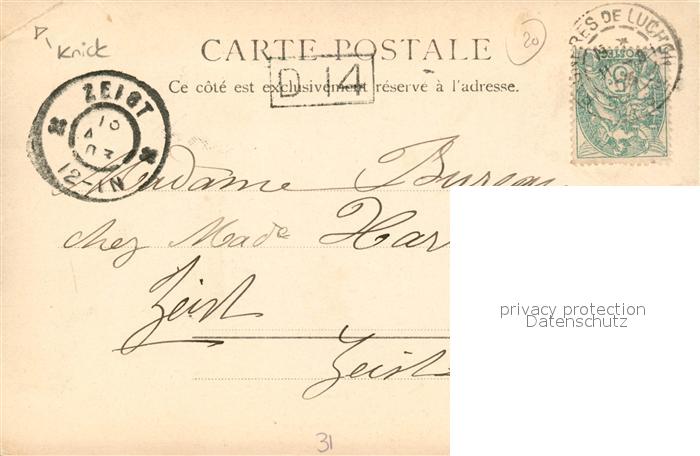 Knick
20
CARTE POSTALE
D 14
Ce côté est exclusivement réservé à l'adresse.
RES DE LUCHON
ZEIST
12-1N
Madame
chez Made Har
Zeist
Zeist
privacy protection
Datenschutz
31